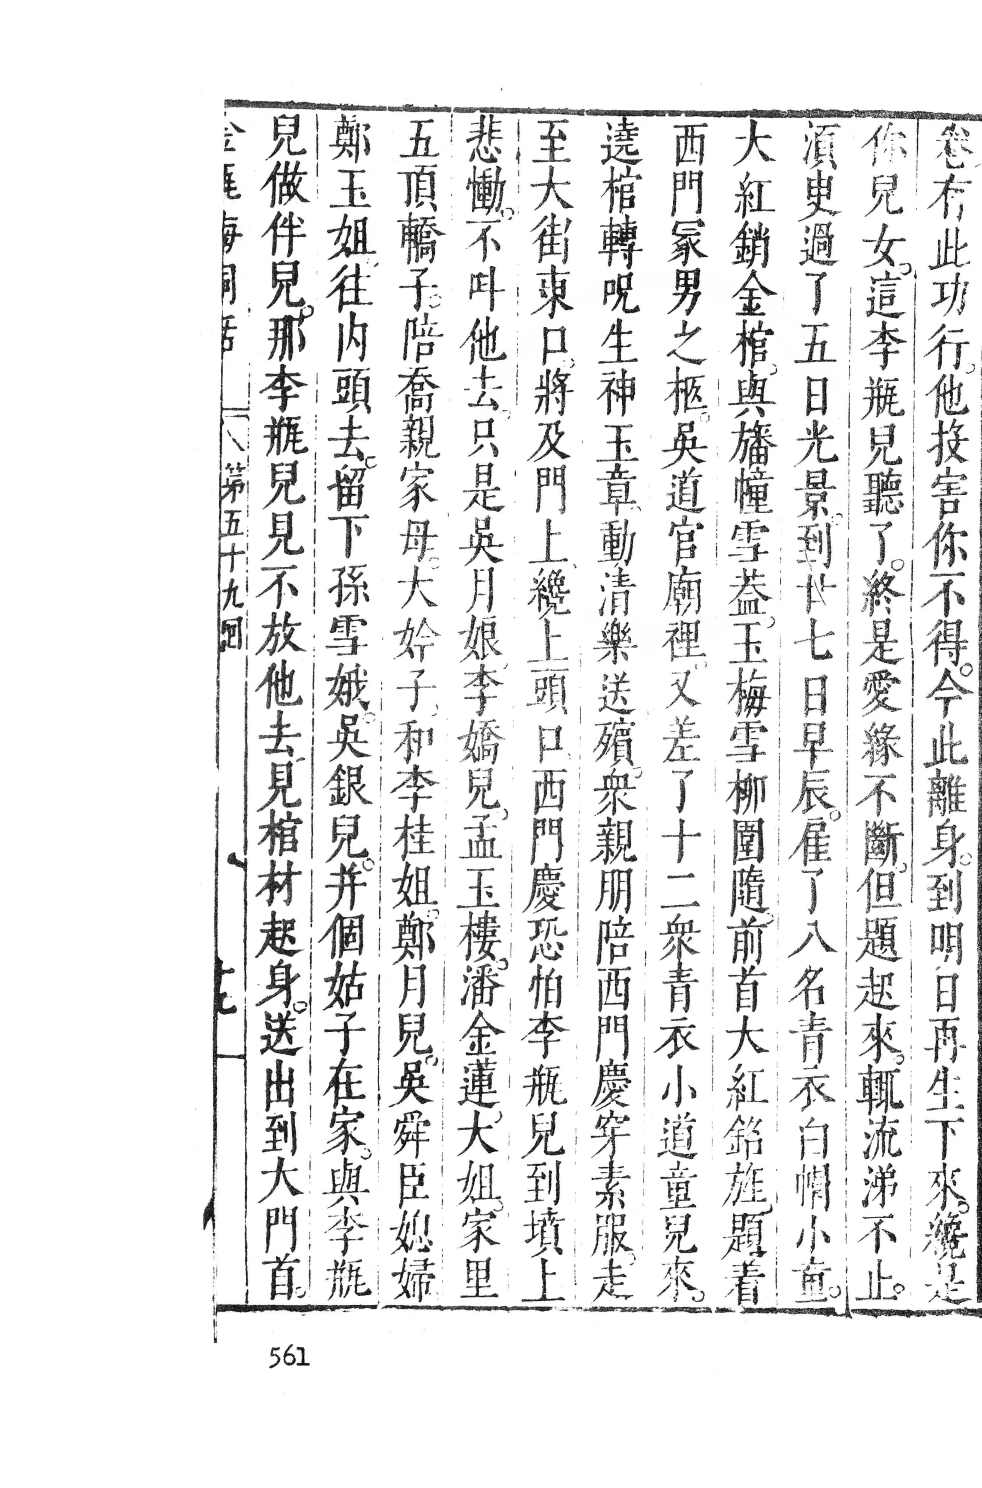 卷有此功行。他投害你不得。今此離身。到明日再生下來。纔是
你兒女。這李瓶兒聽了。終是愛緣不斷。但題起來。輒流涕不止。
湏臾過了五日光景。到廿七日早辰。雇了八名青衣白帽小童。
大紅銷金棺。與旛幢雪蓋。玉梅雪柳圍隨。前首大紅銘旌。題着
西門冢男之柩。吳道官廟裡。又差了十二衆青衣小道童兒來。
遶棺轉呪生神玉章。動清樂送殯。衆親朋陪西門慶穿素服。走
至大街東口。將及門上。纔上頭口。西門慶恐怕李瓶兒到墳上
悲慟。不呌他去。只是吳月娘。李嬌兒。孟玉樓。潘金蓮。大姐。家里
五頂轎子。陪喬親家母。大妗子。和李桂姐。鄭月兒。吳舜臣媳婦
鄭玉姐。往内頭去。留下孫雪娥。吳銀兒。并個姑子在家。與李瓶
兒做伴兒。那李瓶兒見不放他去。見棺材起身。送出到大門首。
金瓶梅詞話 第五十九囘 十七
561